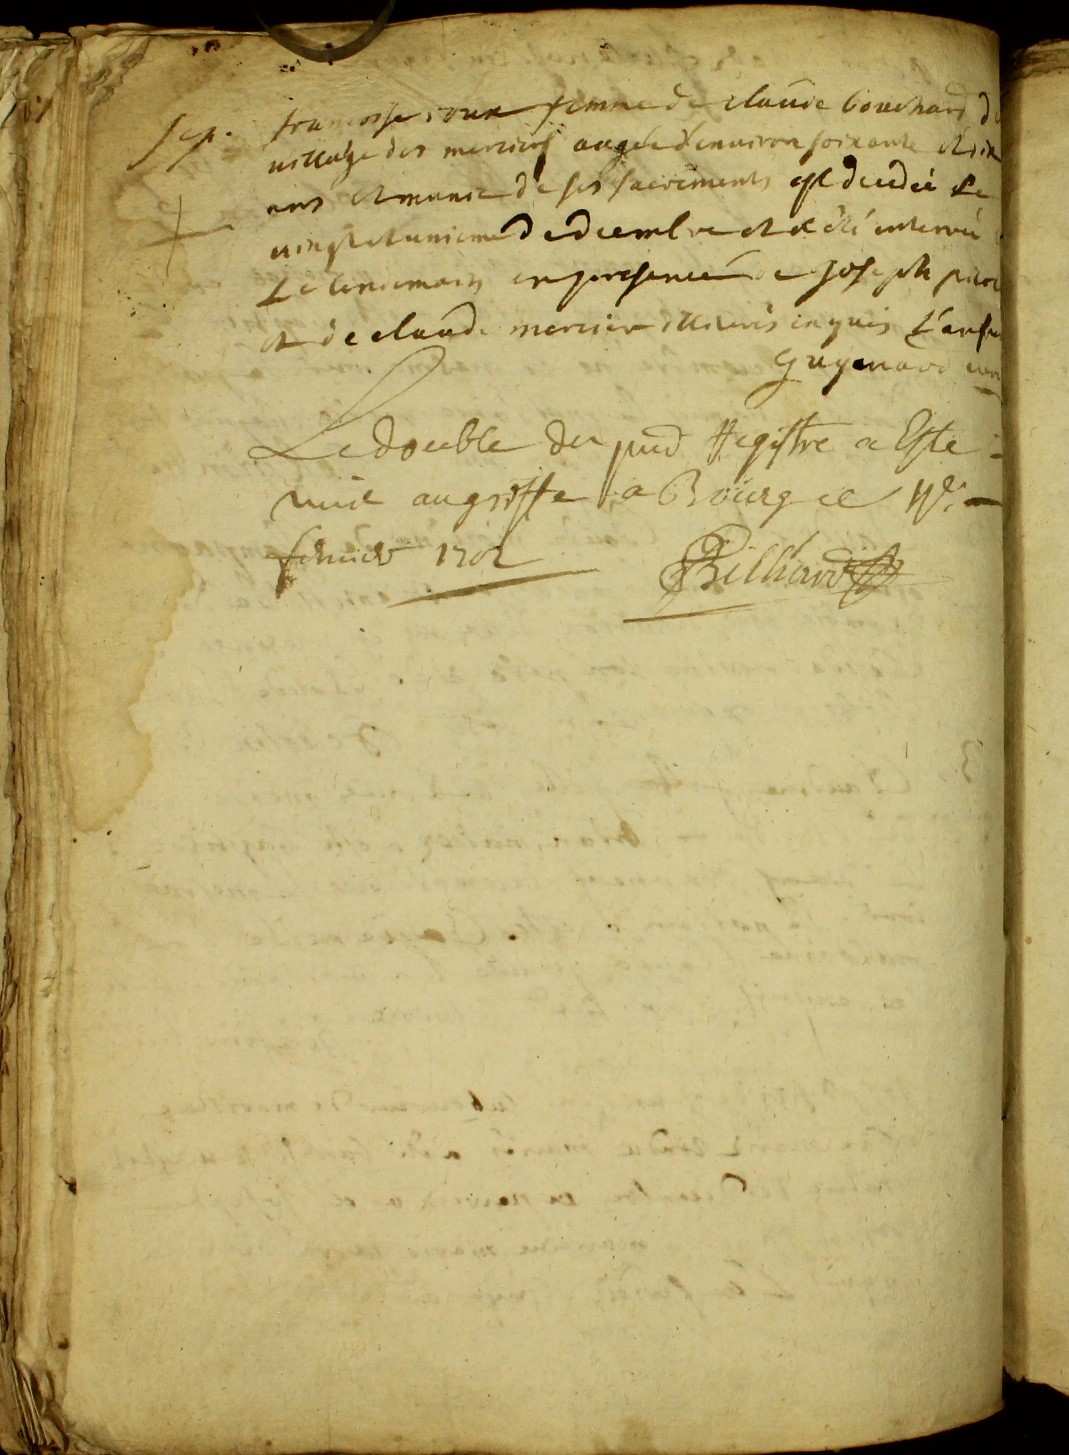 sep.
francoise roux femme de claude bouchard du
village des merciers aagée d'environ soixante et dix
ans et munie de ses sacrements est decedée Le
vingt et unieme de decembre et a été enterrée
Le lendemain en presence de Joseph
et de claude mercier illiterés enquis
Guyenard curé
Le double du pnt Registre a Este
mis au greffe a Bourg ce
febvrier 1702
Billiard